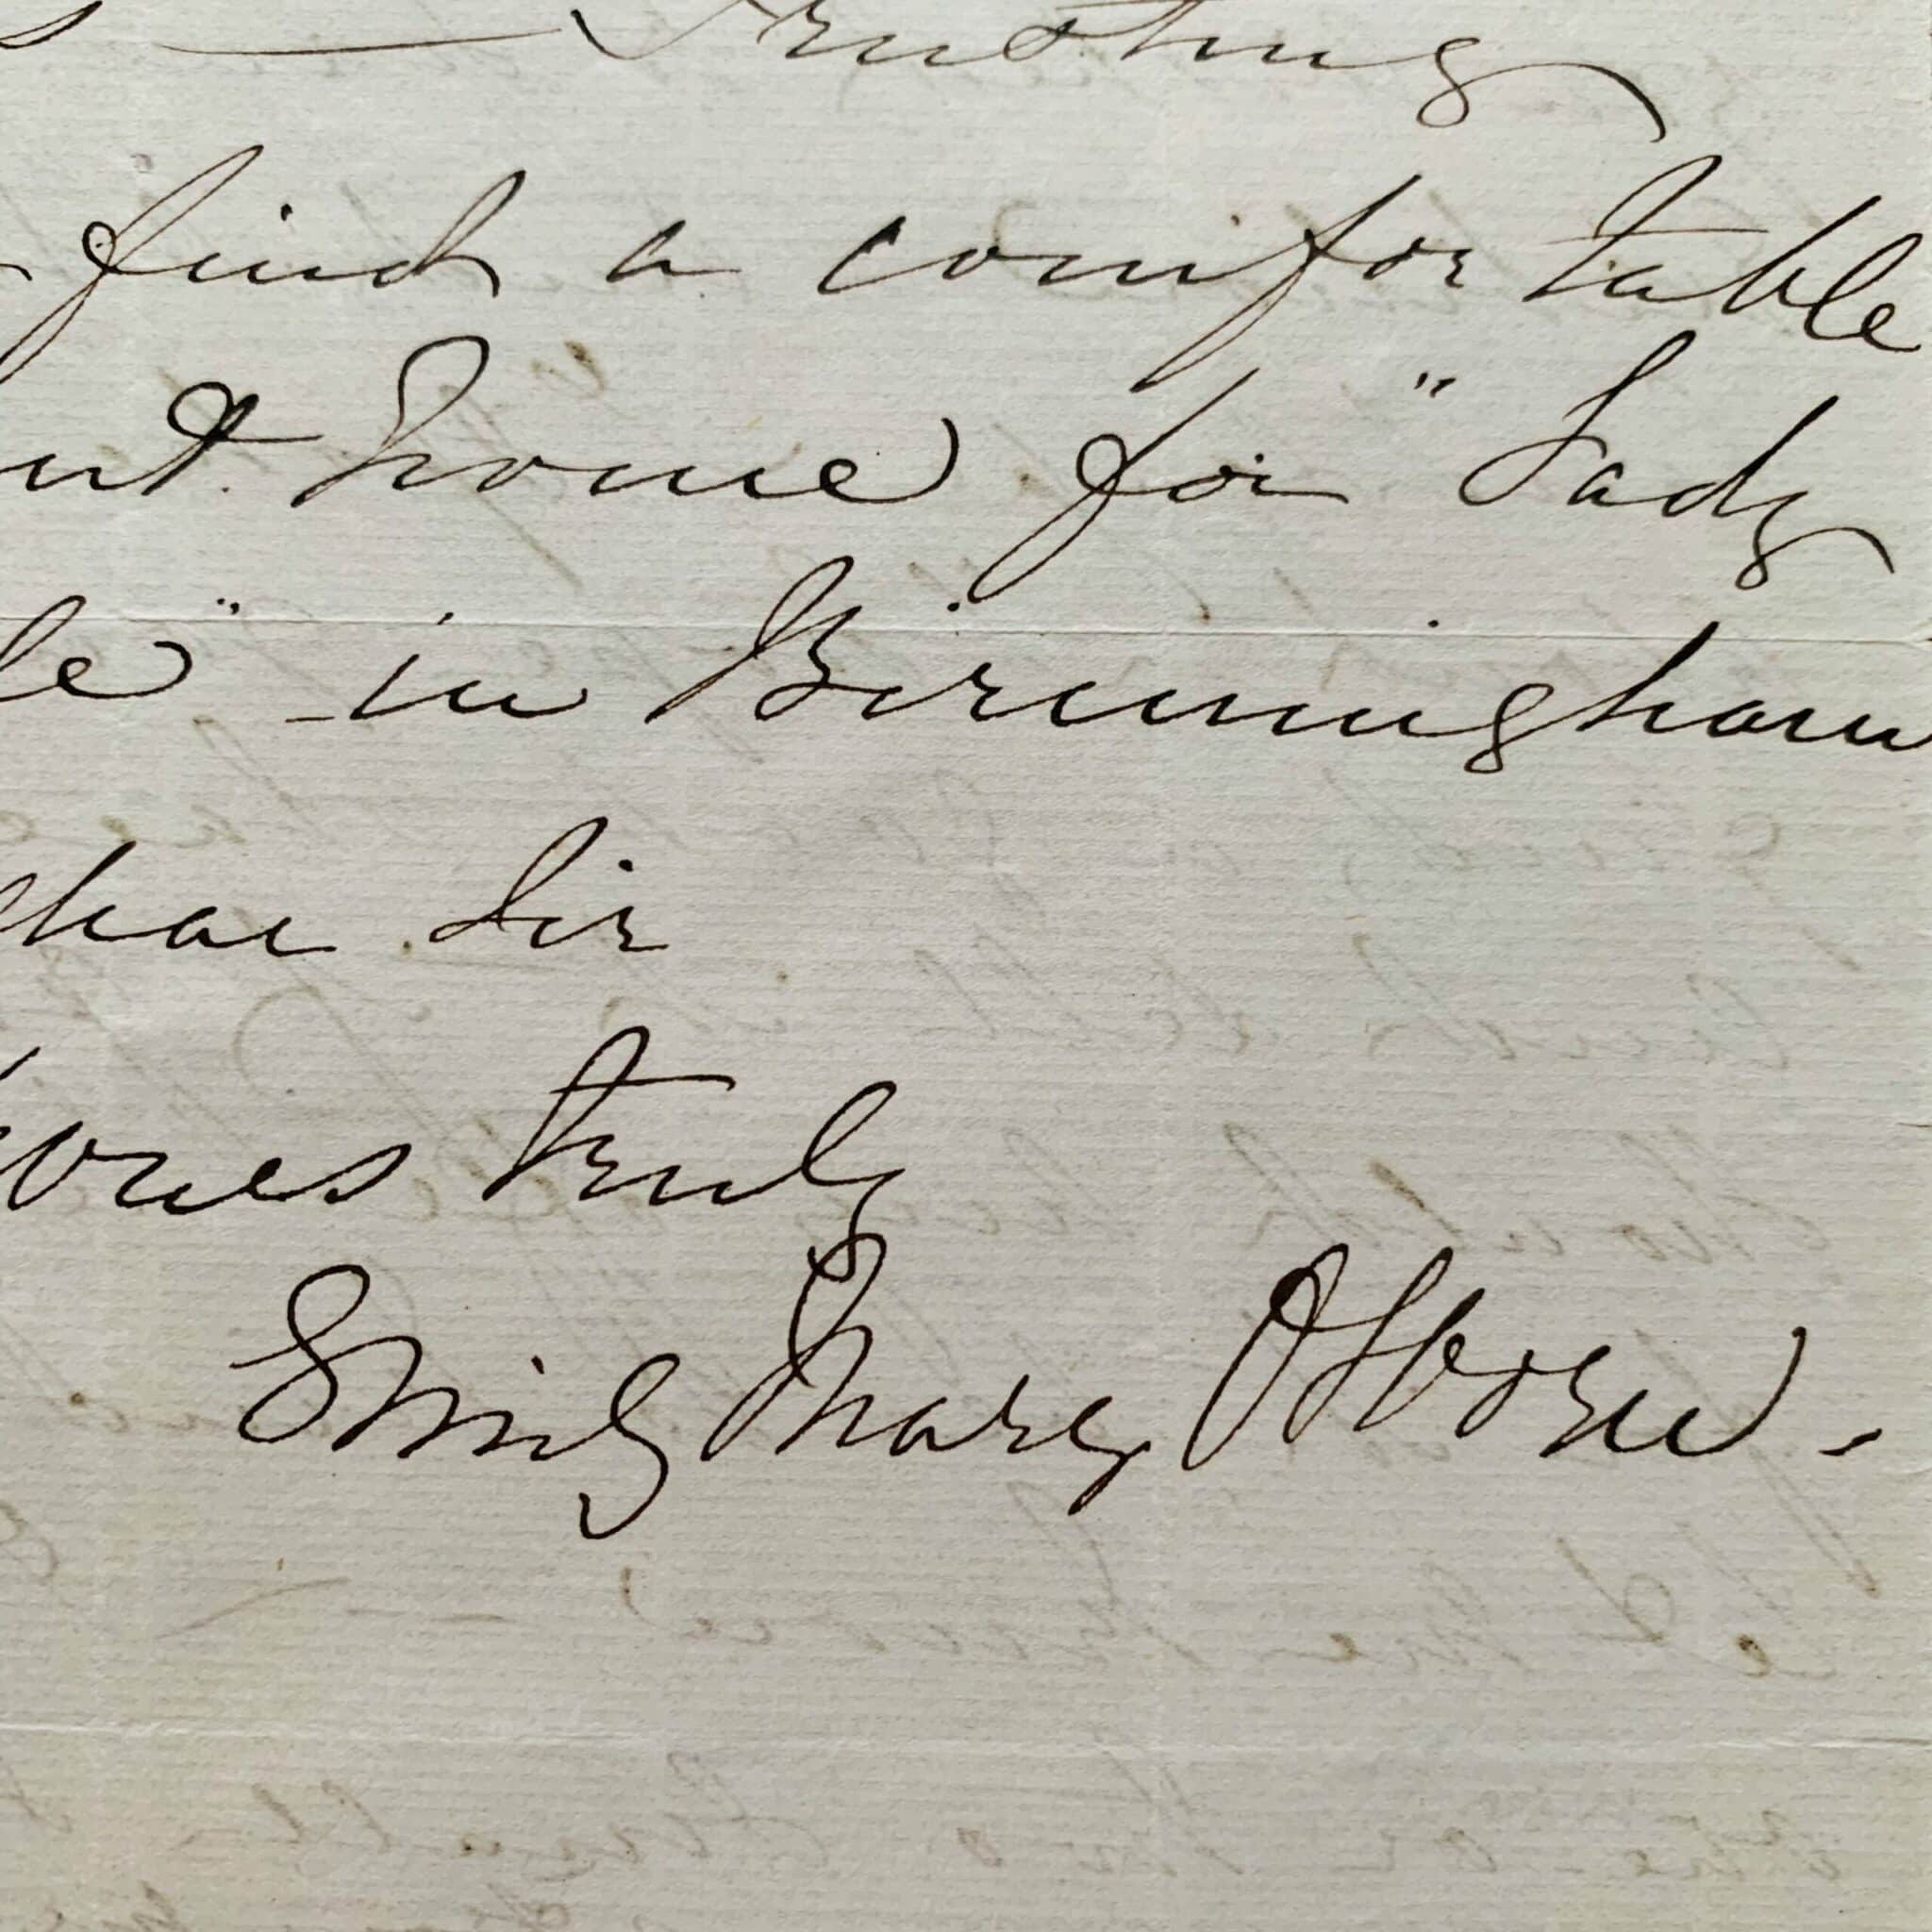 Trusting
find a comfortable
home for "Lady
le" in Birmingham
Sir
truly
Emily Mary Osborn.